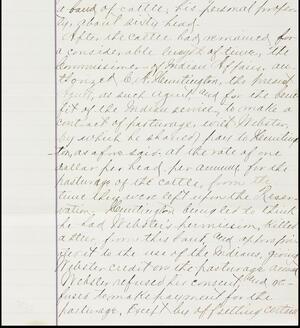 a band of cattle, his personal proper-
ty, about sixty head.
After the cattle had remained for
a considerable length of time, the
Commissioner of Indian Affairs, au-
thorized C. A. Huntington, the present
Agent, as such Agent and for the bene-
fit of the Indian service, to make a
contract of pasturage, with Webster,
by which he should pay to Hunting-
ton, as aforesaid, at the rate of one
dollar per head, per annum for the
pasturage of the cattle, from the
time they were left upon the Reser-
vation. Huntington being led to think
he had Webster's permission, killed
a steer from this band, and appropri-
ated it to the use of the Indians, giving
Webster credit on the pasturage
Webster refused his consent and re-
fuses to make payment for the
pasturage, except by off setting certain